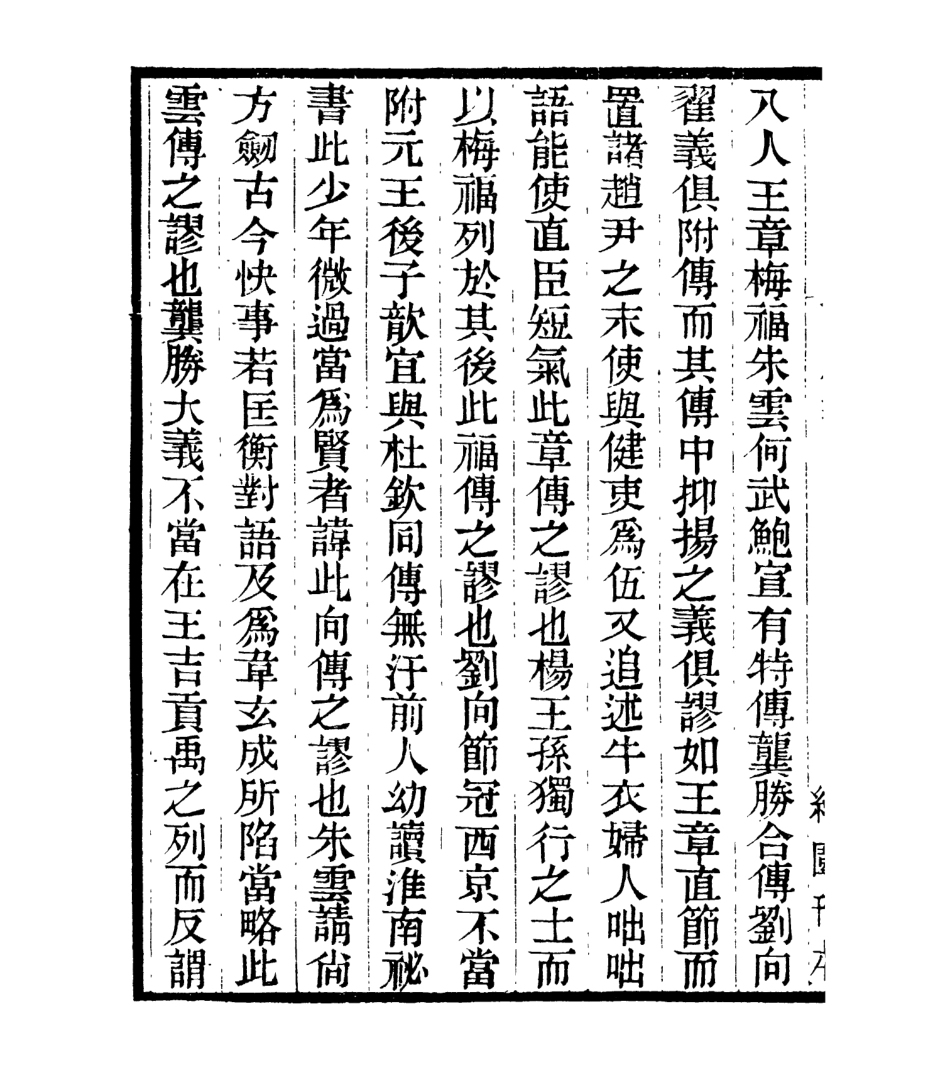 八人王章梅福朱雲何武鮑宣有特傳龔勝合傳劉向
翟義俱附傳而其傳中抑揚之義俱謬如王章直節而
置諸趙尹之末使與健吏爲伍又追述牛衣婦人咄咄
語能使直臣短氣此章傳之謬也楊王孫獨行之士而
以梅福列於其後此福傳之謬也劉向節冠西京不當
附元王後子歆宜與杜欽同傳無汙前人幼讀淮南祕
書此少年微過當爲賢者諱此向傳之謬也朱雲請尙
方劒古今快事若匡衡對語及爲韋玄成所陷當略此
雲傳之謬也龔勝大義不當在王吉貢禹之列而反謂